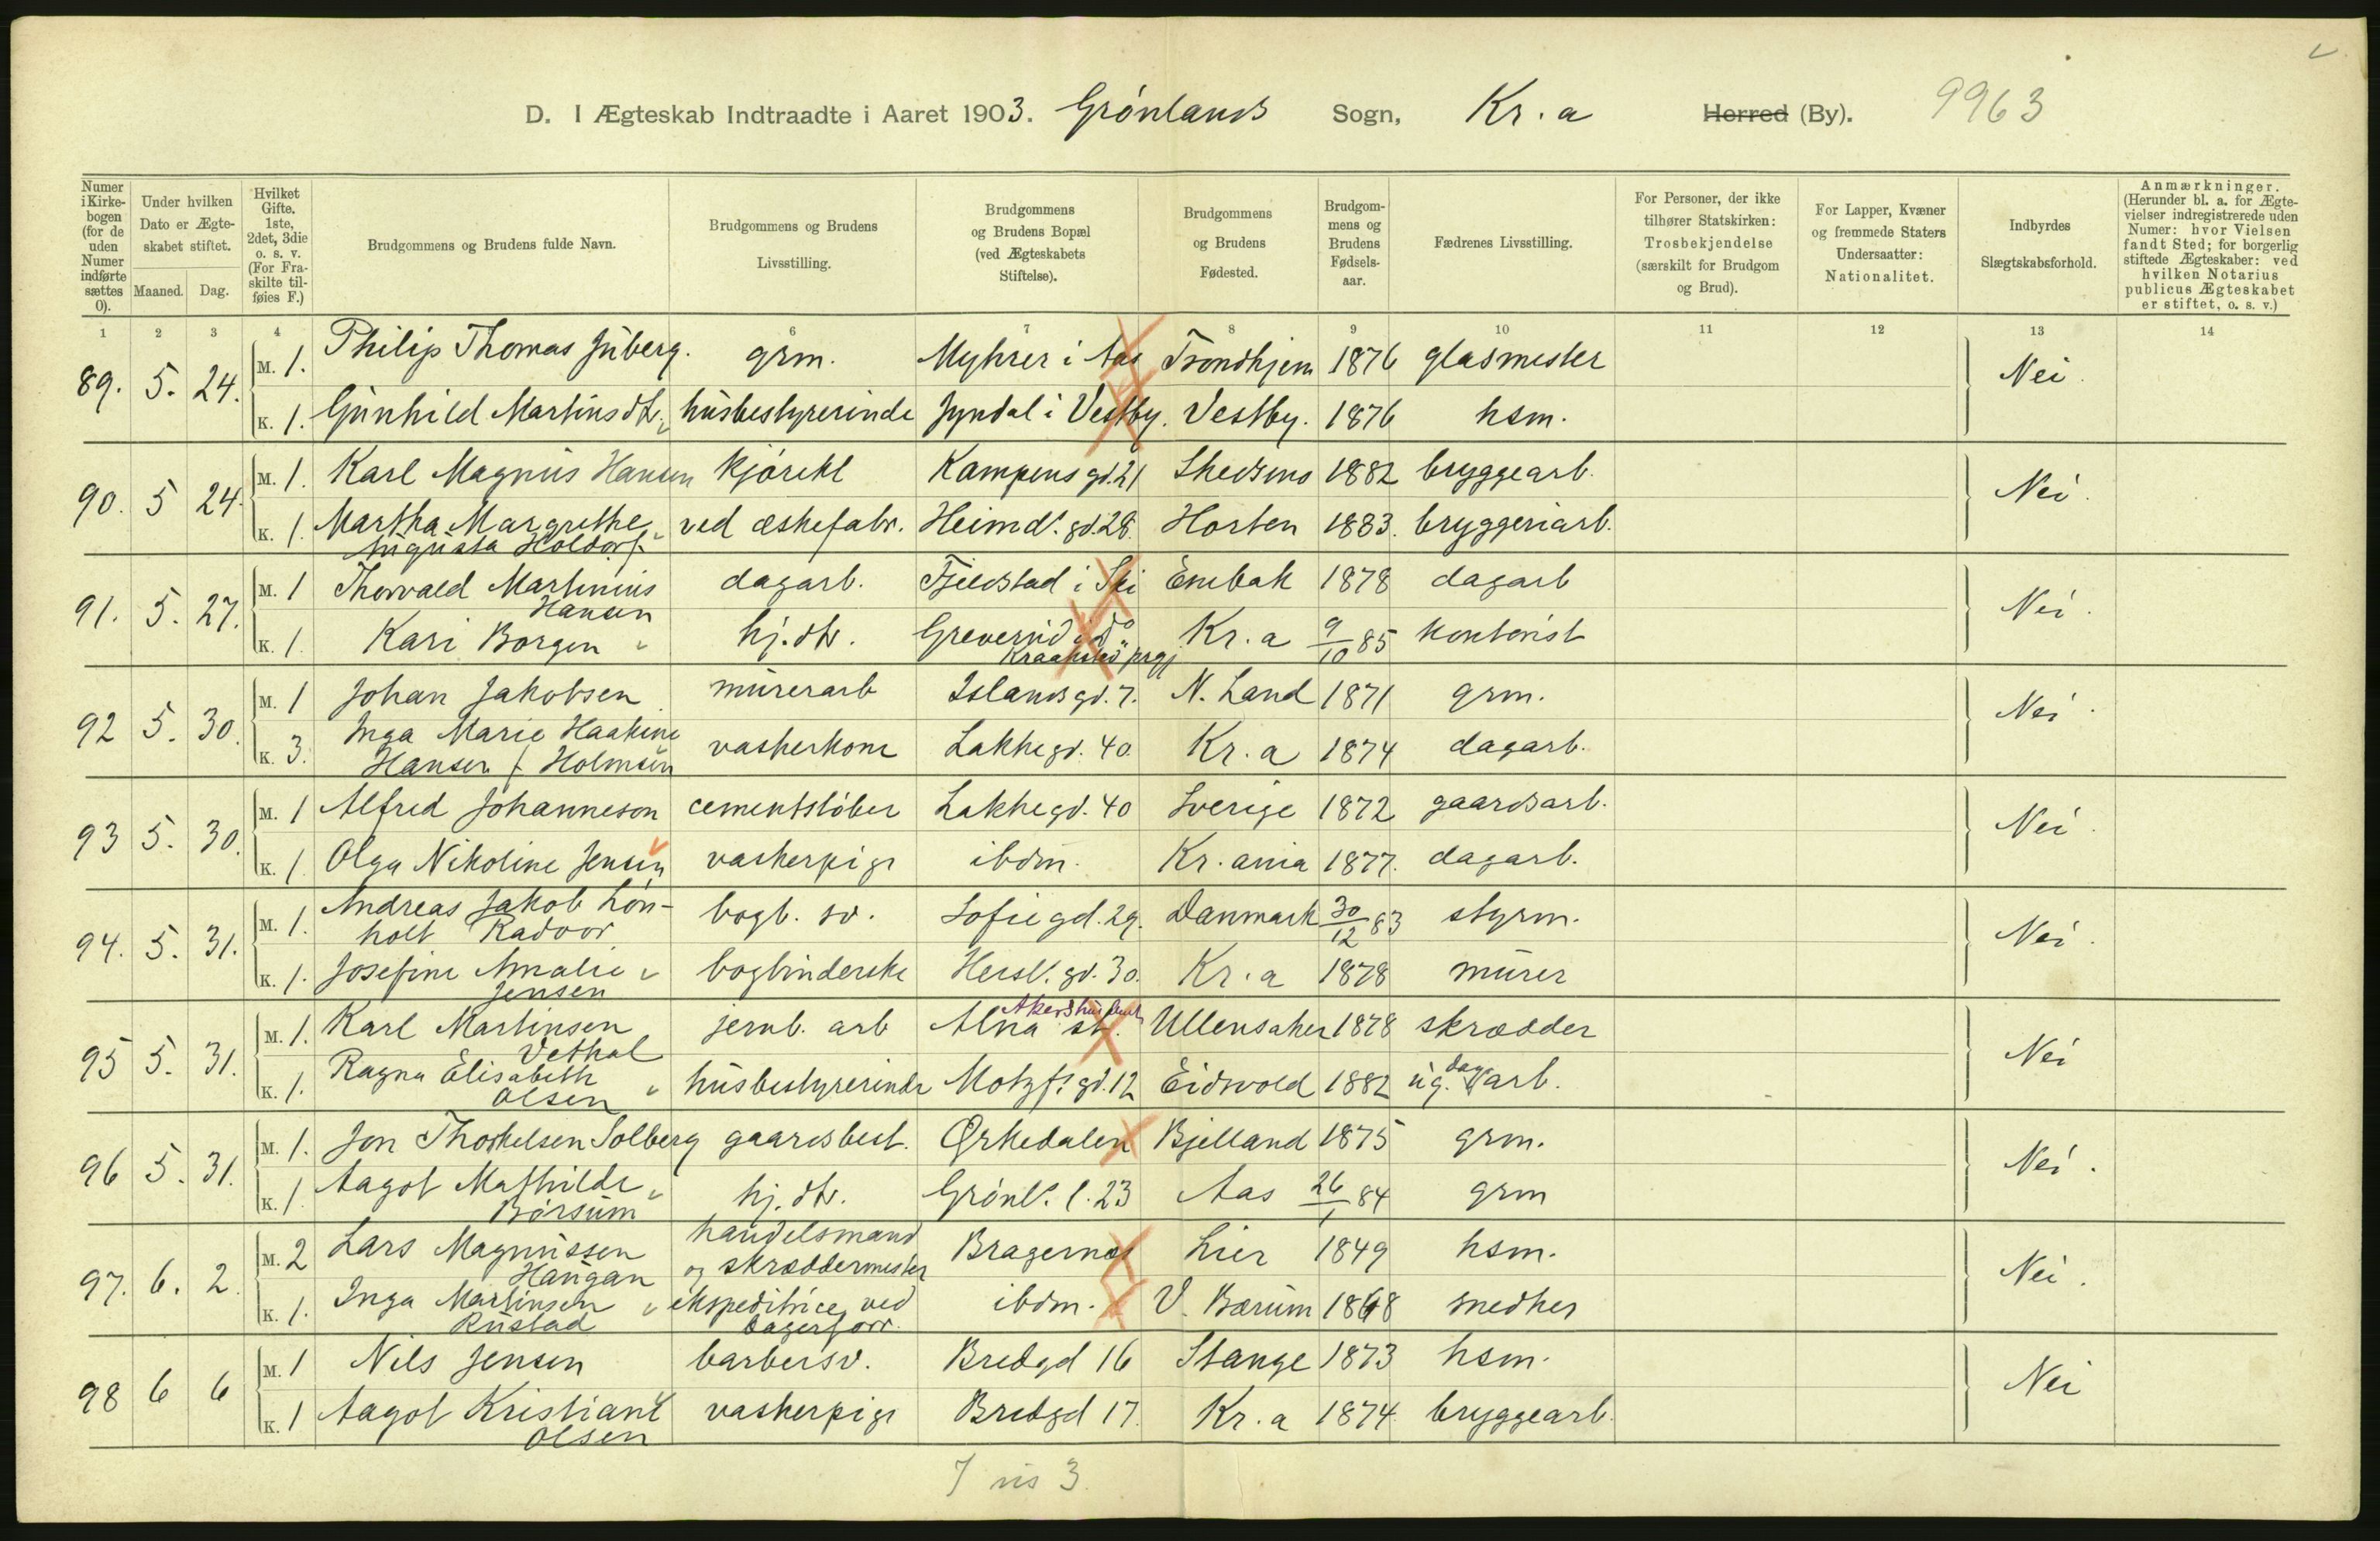 D. I Ægteskab Indtraadte i Aaret 1903. Grønlands Sogn, Kr.a Herred (By). 9963
Numer i Kirkebogen (for de uden Numer indførte sættes 0).
Under hvilken Dato er Ægteskabet stiftet.
Maaned. Dag.
Hvilket Gifte. 1ste, 2det, 3die o. s. v. (For Fraskilte tilføies F.)
Brudgommens og Brudens fulde Navn.
Brudgommens og Brudens Livsstilling.
Brudgommens og Brudens Bopæl (ved Ægteskabets Stiftelse).
Brudgommens og Brudens Fødested.
Brudgommens og Brudens Fødselsaar.
Fædrenes Livsstilling.
For Personer, der ikke tilhører Statskirken: Trosbekjendelse (særskilt for Brudgom og Brud).
For Lapper, Kvæner og fremmede Staters Undersaatter: Nationalitet.
Indbyrdes Slægtskabsforhold.
Anmærkninger. (Herunder bl. a. for Ægtevielser indregistrerede uden Numer: hvor Vielsen fandt Sted; for borgerlig stiftede Ægteskaber: ved hvilken Notarius publicus Ægteskabet er stiftet, o. s. v.)
1 2 3 4 6 7 8 9 10 11 12 13 14
89. 5. 24. M. 1. Philip Thomas Juberg. grm. Myhrer i Aas Trondhjem 1876 glasmester Nei.
K. 1. Gunhild Martinsdtr. husbestyrerinde Jyndal i Vestby. Vestby. 1876 hsm.
90. 5 24. M. 1. Karl Magnus Hansen kjørekl Kampens gd. 21 Skedsmo 1882 bryggearb. Nei.
K. 1. Martha Margrethe Augusta Holdorf ved æskefabr. Heimd. gd. 28. Horten 1883. bryggeriarb.
91. 5. 27. M. 1 Thorvald Martinius Hansen dagarb. Fjeldstad i Ski Enebak 1878 dagarb Nei.
K. 1. Kari Borgen hj. dtr. Greverud Kraakstad prgj Kr.a 9/10 85 kontorist
92 5. 30. M. 1 Johan Jakobsen murerarb Islandsgd. 7. N. Land 1871 grm. Nei.
K. 3. Inga Marie Haakine Hansen f. Holmsen vaskerkone Lakkegd. 40. Kr.a 1874 dagarb.
93 5. 30. M. 1 Alfred Johanneson cementstøber Lakkegd. 40 Sverige 1872 gaardsarb. Nei.
K. 1. Olga Nikoline Jensen vaskerpige ibdm. Kr.ania 1877. dagarb.
94. 5. 31. M. 1. Andreas Jakob Lønholt Radoor bogb. sv. Sofiegd. 29. Danmark 30/12 83 styrm. Nei.
K. 1. Josefine Amalie Jensen bogbinderske Hersl. gd. 30. Kr.a 1878 murer
95 5. 31. M. 1. Karl Martinsen Vethal jernb. arb Alna st. Akershus Ullensaker 1878 skrædder Nei
K. 1. Ragna Elisabeth Olsen husbestyrerinde Motzf. gd. 12 Eidsvold 1882 ug. dagarb.
96 5. 31. M. 1. Jon Thorkelsen Solberg gaardsbest. Ørkedalen Bjelland 1875 grm. Nei.
K. 1. Aagot Mathilde Børsum hj. dtr. Grønl. l. 23 Aas 26/1 84 grm
97. 6. 2. M. 2 Lars Magnussen Haugan handelsmand og skræddermester Bragernæs Lier 1849 hsm. Nei.
K. 1. Inga Martinsen Rustad ekspeditrice ved bagerforr. ibdm. V. Bærum 1868 snedker
98 6 6 M. 1 Nils Jensen barbersv. Bredgd 16 Stange 1873 hsm. Nei
K. 1 Aagot Kristiane Olsen vaskerpige Bredgd 17. Kr.a 1874. bryggearb.